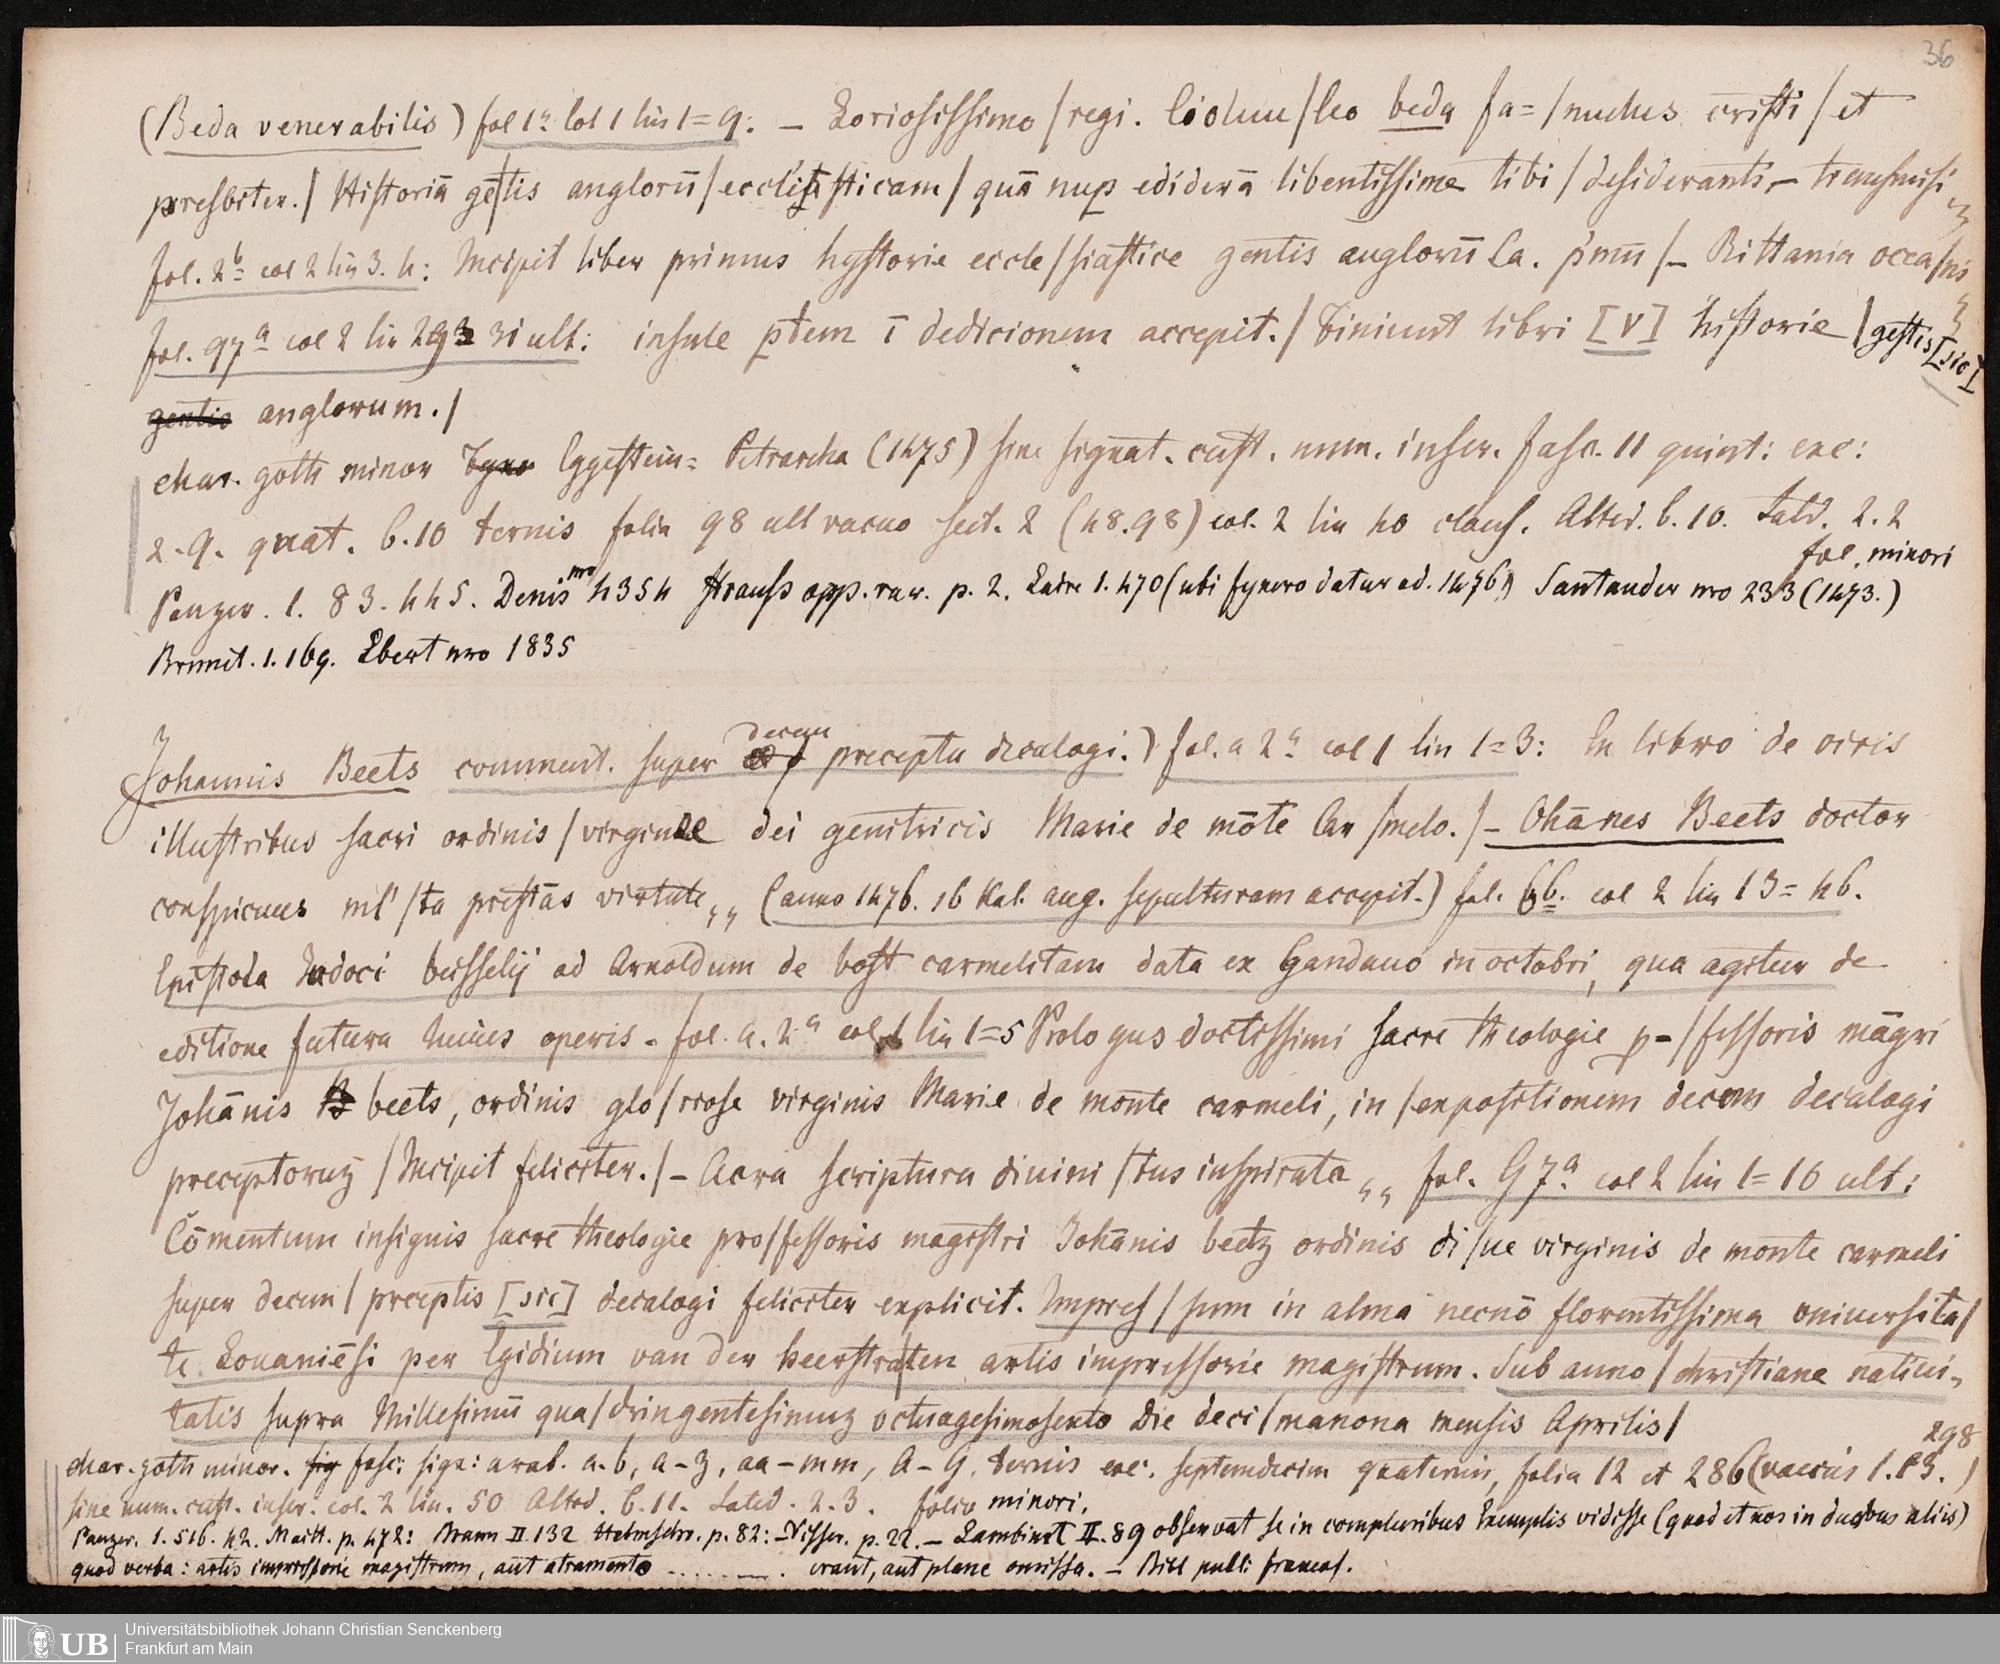 36
(Beda venerabilis) fol 1ª Col 1 lin 1=9: — Loriosissimo / regi. / leo beda fa= / mulus cristi / et
presbiter. / Historiā gētis anglorū / ecclesiasticam / quā nup ediderā libentissime tibi / desideranti, — transmisi
fol. 2b col 2 lin 3. 4: Incipit liber primus hystorie eccle / siastice gentis anglorū Ca. p'mū / — Rittania occa/nis
fol. 97ª col 2 lin 31 ult: insule ptem ī dedicionem accepit. / Finiunt libri [V] historie / gestis [sic]
gentis anglorum. /
char. goth minor Eggestein= Petrarcha (1475) sine signat. cust. num. inscr. fasc. 11 quint: exc:
2. 9. quat. 6. 10 ternis folia 98 ult vacuo sect. 2 (48.98) col. 2 lin 40 claus. Altid. 6. 10. Latd. 2. 2
fol. minori
Panzer. 1. 83. 445. Denis nro 4354 Strauss opp. rar. p. 2. Laire 1. 470 (ubi fynero datur ad. 1476) Santander nro 233 (1473.)
Brunet. 1. 169. Ebert nro 1835
Johannis Beets comment. super decem precepta decalogi.) fol. a 2ª col 1 lin 1=3: In libro de viris
illustribus sacri ordinis / virginis dei genitricis Marie de mōte Car / melo. / — Ohānes Beets doctor
conspicuus ml' / ta prestās virtute „ (anno 1476. 16 Kal. aug. sepulturam accepit.) fol. 6b. col 2 lin 13=46.
Epistola Judoci beisselij ad Arnoldum de bost carmelitam data ex Gandauo in octobri, qua agitur de
editione futura huius operis. fol. a. 2ª col 1 lin 1=5 Prologus doctissimi sacre theologie p- / fessoris māgri
Johānis B beets, ordinis glo / riose virginis Marie de monte carmeli, in / expositionem decem decalogi
preceptoruz / Incipit feliciter. / — Acra scriptura diuini / tus inspirata „ fol. G 7ª col 2 lin 1=16 ult:
Cōmentum insignis sacre theologie pro / fessoris magistri Johānis beetz ordinis di / ue virginis de monte carmeli
super decem / preceptis [sic] decalogi feliciter explicit. Impres / sum in alma necnō florentissima vniuersita /
te Louaniēsi per Egidium van der heerstraten artis impressorie magistrum. Sub anno / christiane natiui-
tatis supra Millesimū qua / dringentesimuz octuagesimosexto Die deci / manona mensis Aprilis /
char. goth minor. sig fasc: sign: arab. a. b, a-z, aa-mm, A-G. ternis exc. septemdecim quaternis, folia 12 et 286 298 (vacuis 1. 13.)
sine num. cust. inscr. col. 2 lin. 50 Altod. 6. 11. Latid. 2. 3. folio minori.
Panzer. 1. 516. 42. Maitt. p. 472: Braun II. 132 Helmschr. p. 82: — Visser. p. 22. — Lambinet II. 89 observat se in compluribus Exemplis vidisse (quod et nos in duobus aliis)
quod verba: artis impressorie magistrum, aut atramento ........ erant, aut plane omissa. — Bibl publ: francof.
Universitätsbibliothek Johann Christian Senckenberg
UB Frankfurt am Main